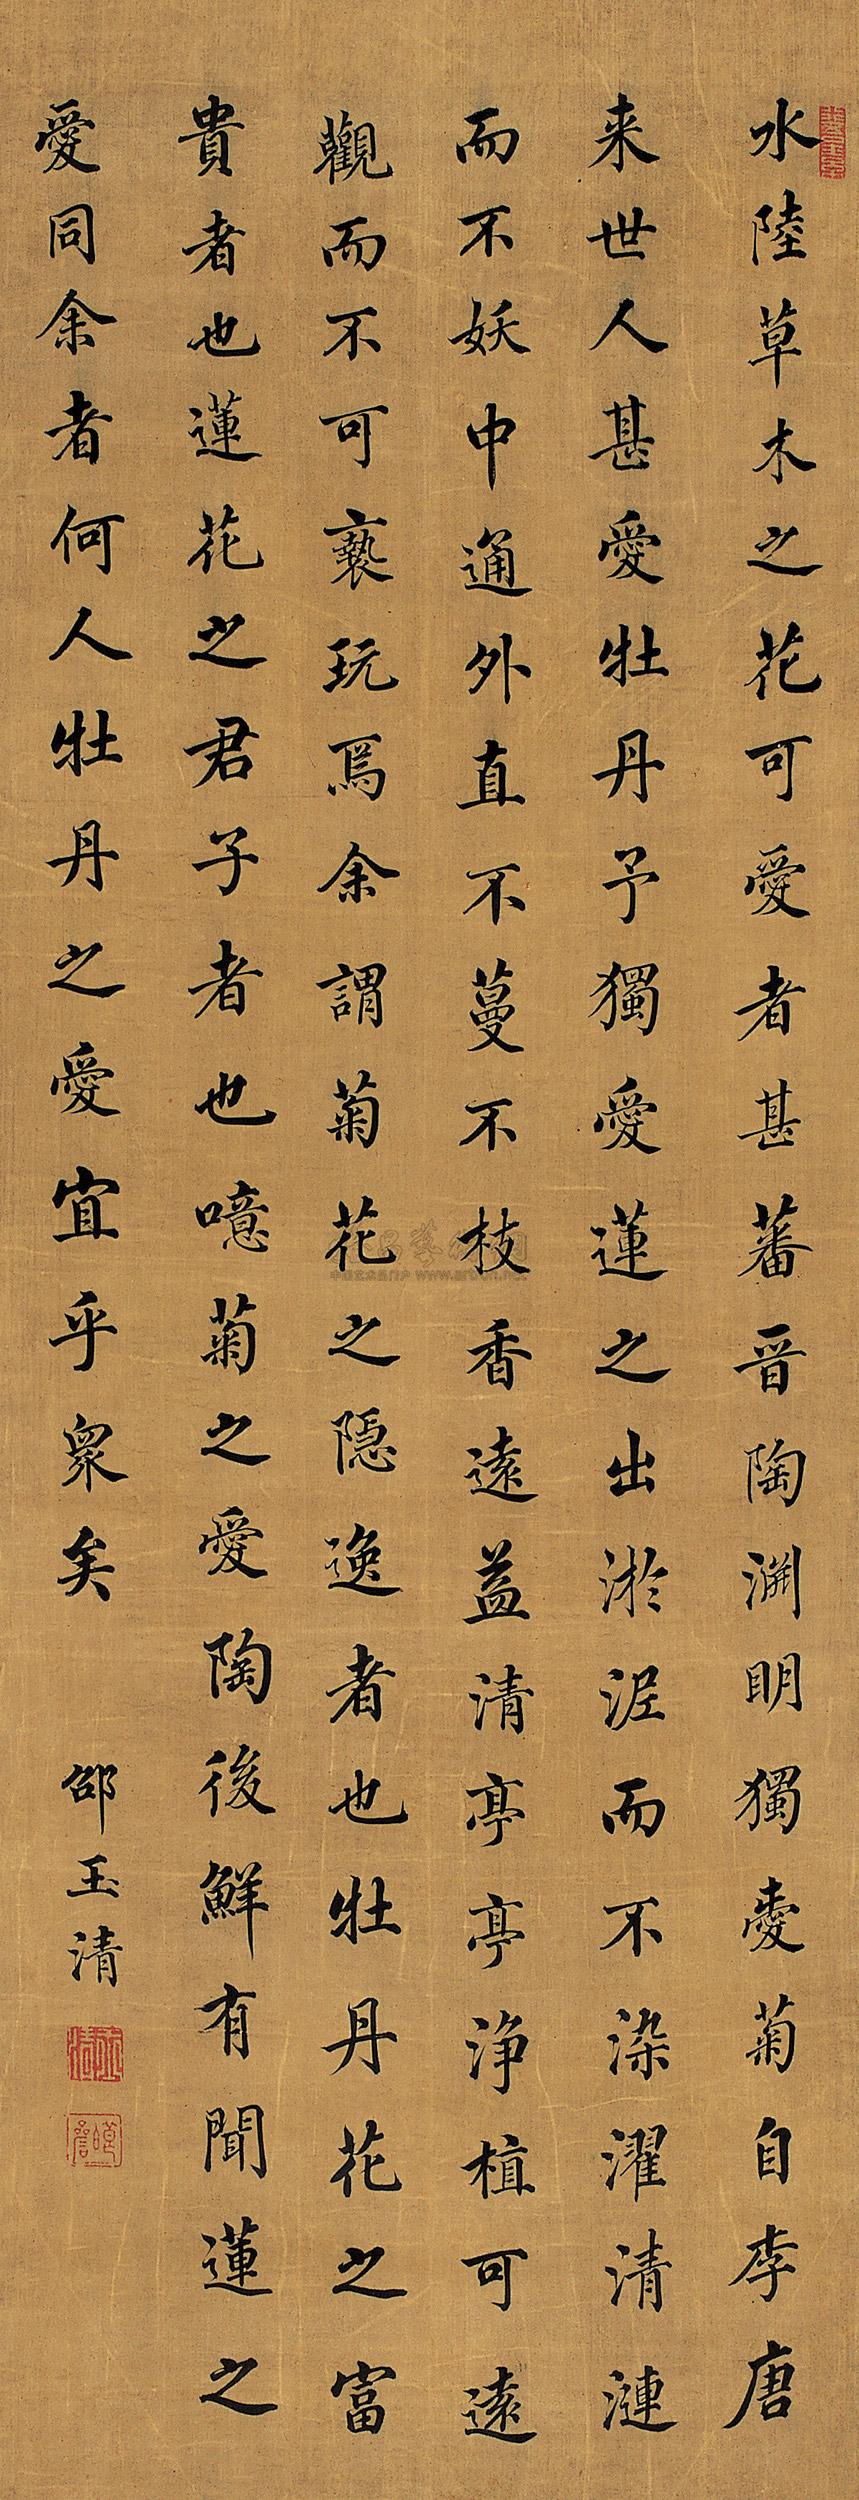 水陸草木之花可愛者甚蕃晉陶淵明獨愛菊自李唐
来世人甚愛牡丹予獨愛蓮之出淤泥而不染濯清漣
而不妖中通外直不蔓不枝香遠益清亭亭浄植可遠
觀而不可褻玩焉余謂菊花之隠逸者也牡丹花之富
貴者也蓮花之君子者也噫菊之愛陶後鮮有聞蓮之
愛同余者何人牡丹之愛宜乎衆矣
邵玉清